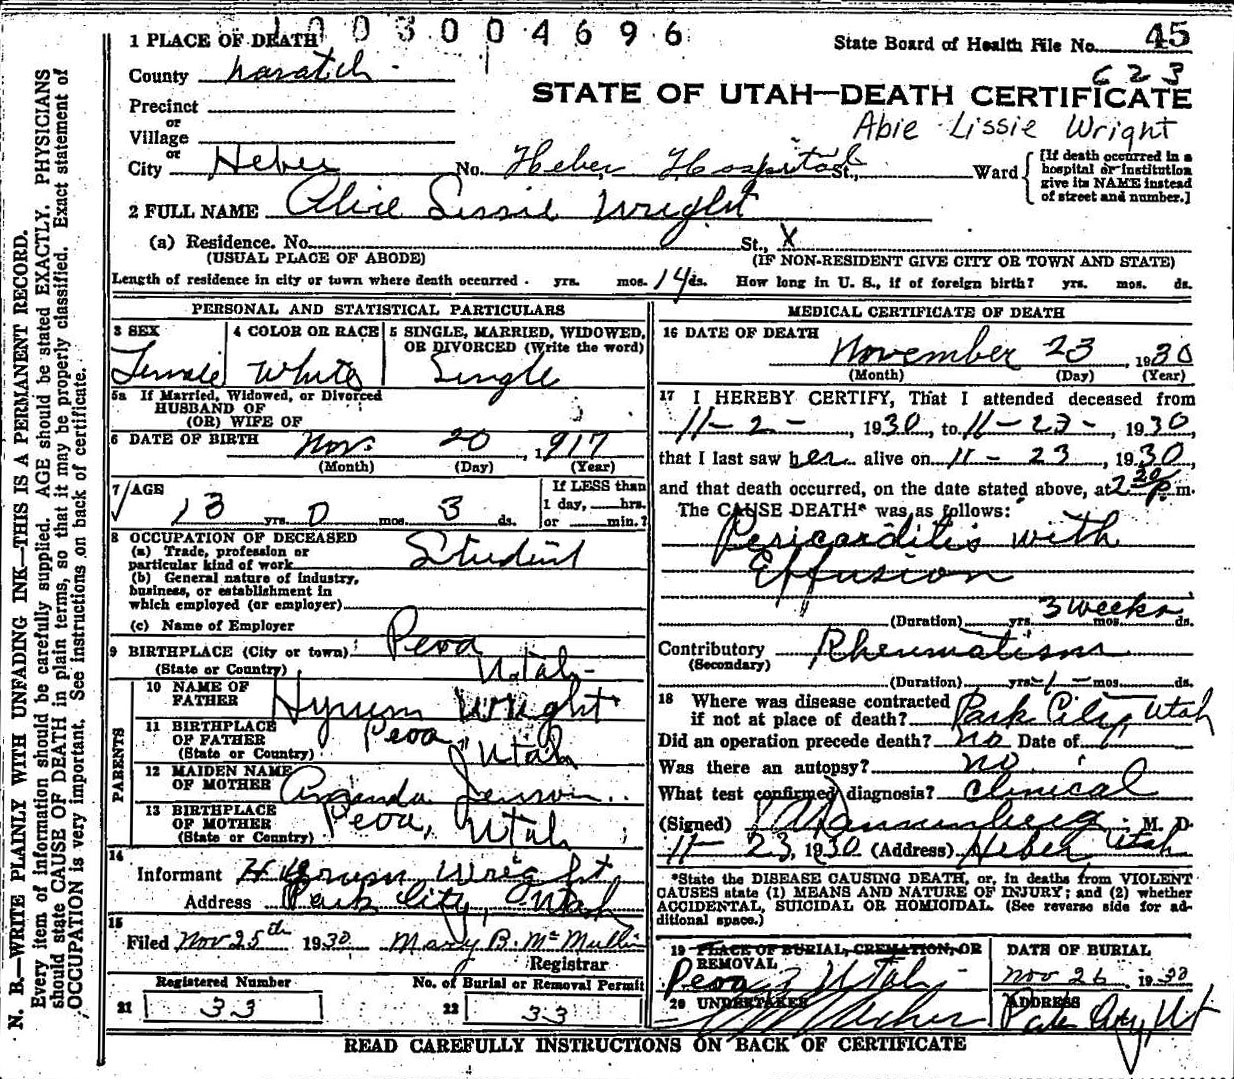 1003004696
1 PLACE OF DEATH
State Board of Health File No. 45
County Wasatch
C 23
STATE OF UTAH—DEATH CERTIFICATE
Precinct
or
Village
Abie Lissie Wright
or
City Heber No. Heber Hospital St., Ward
[If death occurred in a
hospital or institution
give its NAME instead
of street and number.]
2 FULL NAME Alice Lissie Wright
(a) Residence. No. St., X
(USUAL PLACE OF ABODE) (IF NON-RESIDENT GIVE CITY OR TOWN AND STATE)
Length of residence in city or town where death occurred yrs. mos. 14 ds. How long in U. S., if of foreign birth? yrs. mos. ds.
PERSONAL AND STATISTICAL PARTICULARS
3 SEX 4 COLOR OR RACE 5 SINGLE, MARRIED, WIDOWED,
OR DIVORCED (Write the word)
Female White Single
5a If Married, Widowed, or Divorced
HUSBAND OF
(OR) WIFE OF
6 DATE OF BIRTH Nov. 20, 1917
(Month) (Day) (Year)
7 AGE
If LESS than
1 day, hrs.
or min.?
13 yrs. 0 mos. 3 ds.
8 OCCUPATION OF DECEASED
(a) Trade, profession or
particular kind of work Student
(b) General nature of industry,
business, or establishment in
which employed (or employer)
(c) Name of Employer
9 BIRTHPLACE (City or town) Peoa
(State or Country) Utah
PARENTS
10 NAME OF
FATHER Hyrum Wright
11 BIRTHPLACE
OF FATHER Peoa, Utah
(State or Country)
12 MAIDEN NAME
OF MOTHER Amanda
13 BIRTHPLACE
OF MOTHER Peoa, Utah
(State or Country)
14
Informant Hyrum Wright
Address Park City, Utah
15
Filed Nov 25th 1930 Mary B. McMullin
Registrar
Registered Number No. of Burial or Removal Permit
21 33 22 33
MEDICAL CERTIFICATE OF DEATH
16 DATE OF DEATH
November 23, 1930
(Month) (Day) (Year)
17 I HEREBY CERTIFY, That I attended deceased from
11-2-, 1930, to 11-23-, 1930,
that I last saw her alive on 11-23, 1930,
and that death occurred, on the date stated above, at 2 30 P. m.
The CAUSE DEATH* was as follows:
Pericarditis with
Effusion
3 weeks
(Duration) yrs. mos. ds.
Contributory Rheumatism
(Secondary)
(Duration) yrs -1- mos. ds.
18 Where was disease contracted
if not at place of death? Park City, Utah
Did an operation precede death? no Date of
Was there an autopsy? no
What test confirmed diagnosis? Clinical
(Signed) M. D.
11-23, 1930 (Address) Heber Utah
*State the DISEASE CAUSING DEATH, or, in deaths from VIOLENT
CAUSES state (1) MEANS AND NATURE OF INJURY; and (2) whether
ACCIDENTAL, SUICIDAL OR HOMICIDAL. (See reverse side for ad-
ditional space.)
19 PLACE OF BURIAL, CREMATION, OR
REMOVAL
Peoa, Utah
DATE OF BURIAL
Nov 26, 1930
20 UNDERTAKER
ADDRESS
Park City, Ut
READ CAREFULLY INSTRUCTIONS ON BACK OF CERTIFICATE
N. B.—WRITE PLAINLY WITH UNFADING INK—THIS IS A PERMANENT RECORD.
Every item of information should be carefully supplied. AGE should be stated EXACTLY. PHYSICIANS
should state CAUSE OF DEATH in plain terms, so that it may be properly classified. Exact statement of
OCCUPATION is very important. See instructions on back of certificate.